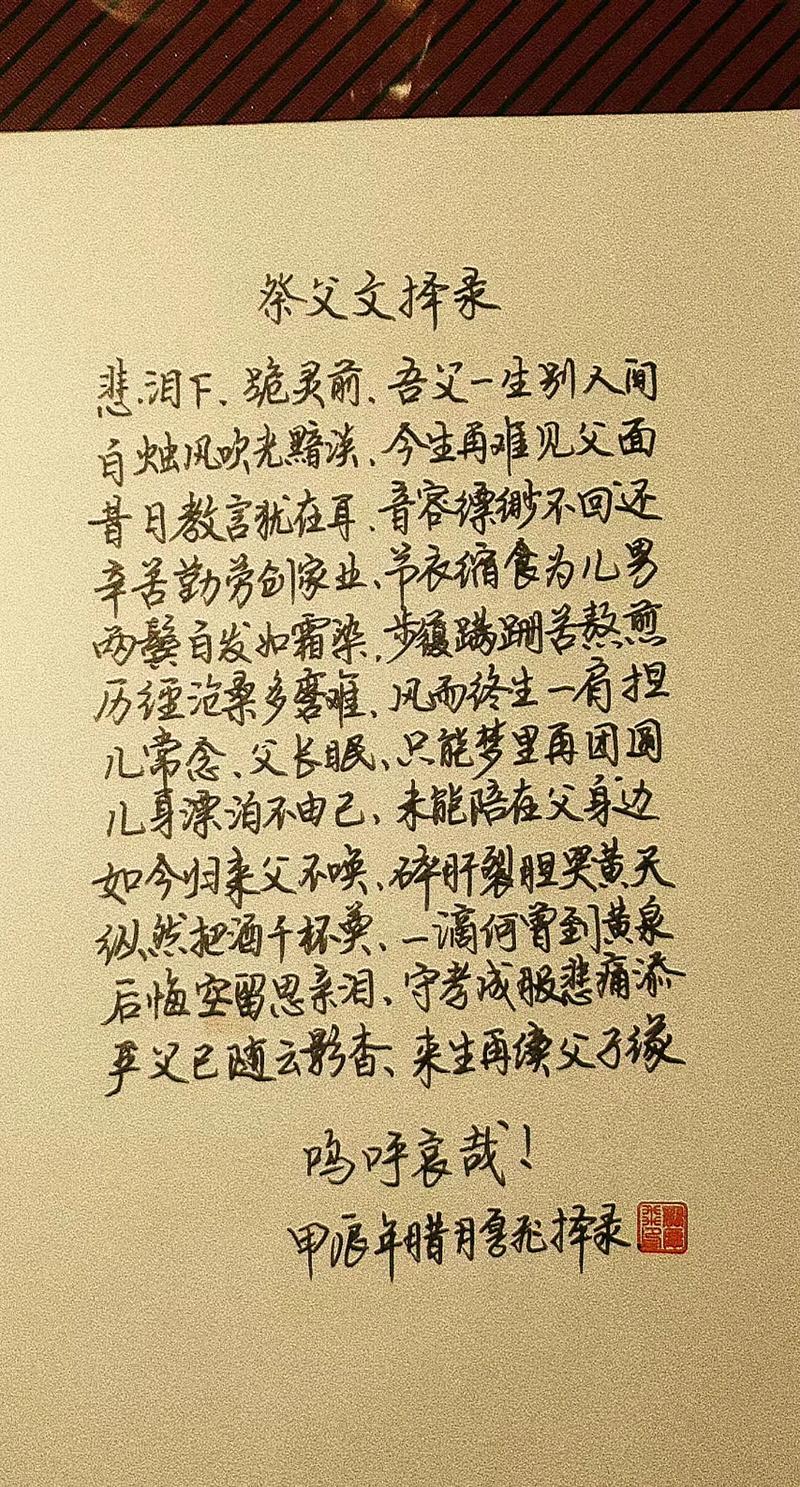 祭父文择录
悲泪下、跪灵前、吾父一生别人间
白烛风吹光黯淡、今生再难见父面
昔日教言犹在耳、音容缥缈不回还
辛苦勤劳创家业、节衣缩食为儿男
两鬓白发如霜染、步履蹒跚苦熬煎
历经沧桑多磨难、风雨终生一肩担
儿常念、父长眠、只能梦里再团圆
儿身漂泊不由己、未能陪在父身边
如今归来父不唤、碎肝裂胆哭黄天
纵然把酒千杯奠、一滴何曾到黄泉
后悔空留思亲泪、守孝成服悲痛添
严父已随云影杳、来生再续父子缘
呜呼哀哉！
甲辰年腊月 择录